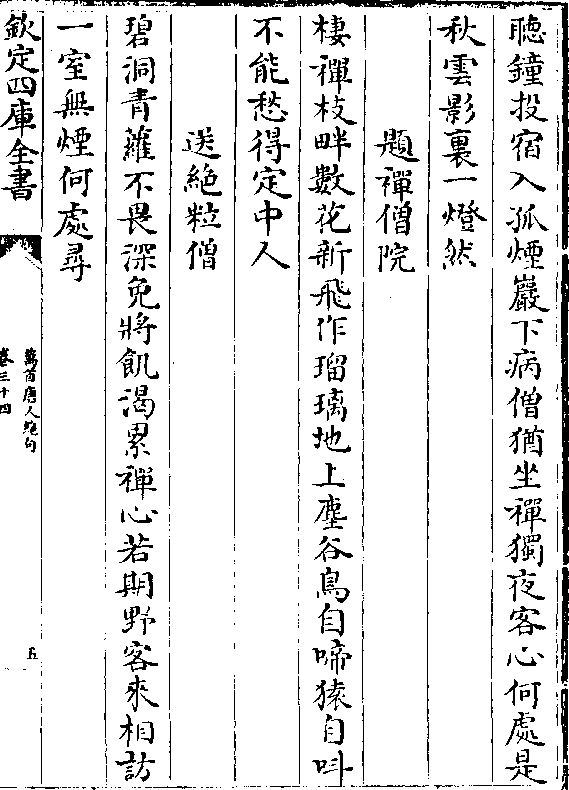 聽鐘投宿入孤煙巖下病僧猶坐禪獨夜客心何處是
秋雲影裏一燈然
題禪僧院
棲禪枝畔數花新飛作瑠璃地上塵谷鳥自啼猿自呌
不能愁得定中人
送絶粒僧
碧洞青蘿不畏深免將飢渴累禪心若期野客來相訪
一室無煙何處尋
欽定四庫全書
萬首唐人絶句
卷三十四
五